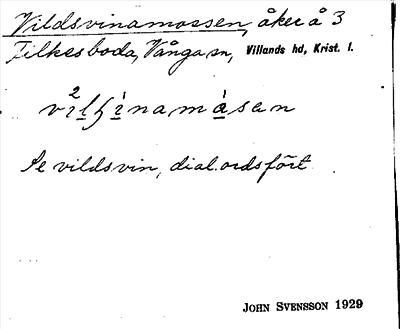 Vildsvinamossen, åker å 3
Filkesboda, Vånga sn, Villands hd, Krist. l.
Se vildsvin, dial.ordsfört.
JOHN SVENSSON 1929